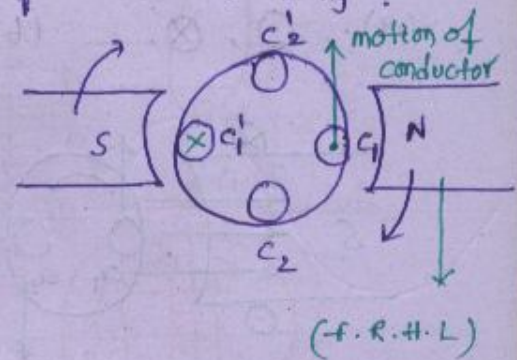 C₂'
motion of
conductor
S
C₁'
C₁
N
C₂
(f.R.H.L)